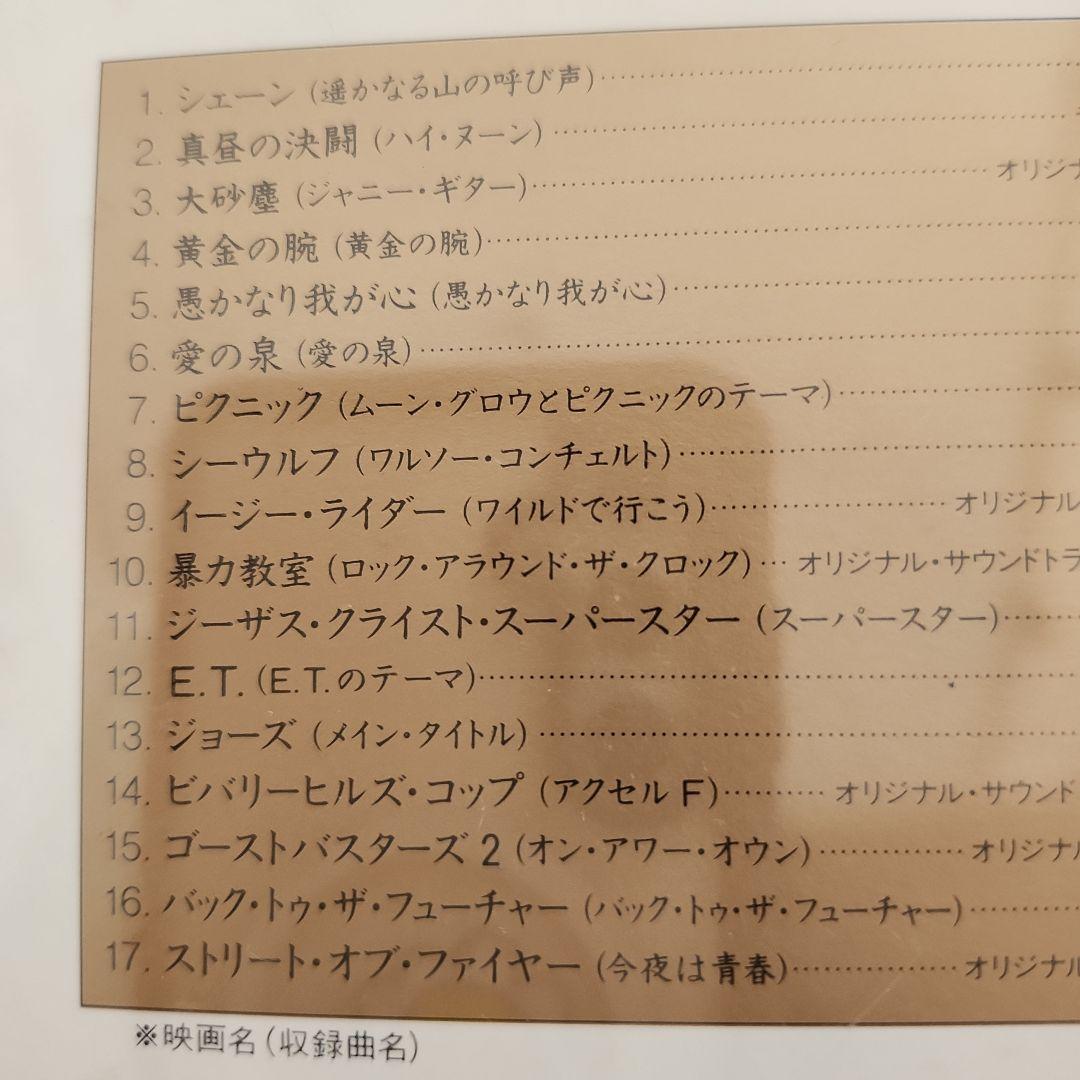 1. シェーン (遥かなる山の呼び声)
2. 真昼の決闘 (ハイ・ヌーン)
3. 大砂塵 (ジャニー・ギター) オリジナ
4. 黄金の腕 (黄金の腕)
5. 愚かなり我が心 (愚かなり我が心)
6. 愛の泉 (愛の泉)
7. ピクニック (ムーン・グロウとピクニックのテーマ)
8. シーウルフ (ワルソー・コンチェルト)
9. イージー・ライダー (ワイルドで行こう) オリジナル
10. 暴力教室 (ロック・アラウンド・ザ・クロック) … オリジナル・サウンドトラ
11. ジーザス・クライスト・スーパースター (スーパースター)
12. E.T. (E.T.のテーマ)
13. ジョーズ (メイン・タイトル)
14. ビバリーヒルズ・コップ (アクセル F) オリジナル・サウンド
15. ゴーストバスターズ 2 (オン・アワー・オウン) オリジナル
16. バック・トゥ・ザ・フューチャー (バック・トゥ・ザ・フューチャー)
17. ストリート・オブ・ファイヤー (今夜は青春) オリジナル
※映画名(収録曲名)